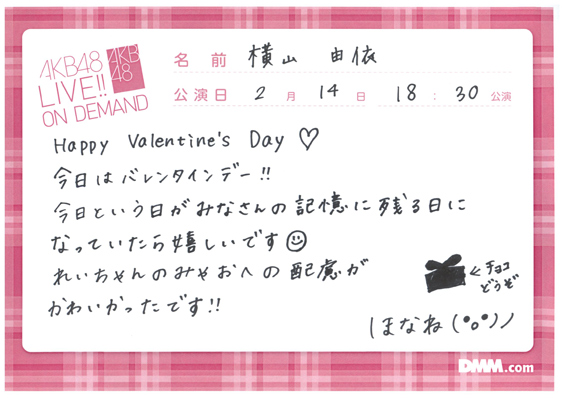 AKB48
LIVE!!
ON DEMAND
AKB
48
名前 横山 由依
公演日 2月 14日 18:30公演
Happy Valentine's Day ♡
今日はバレンタインデー!!
今日という日がみなさんの記憶に残る日に
なっていたら嬉しいです☺
れいちゃんのみゃおへの配慮が
かわいかったです!!
←チョコ
どうぞ
ほなね(•o•)ノ
DMM.com